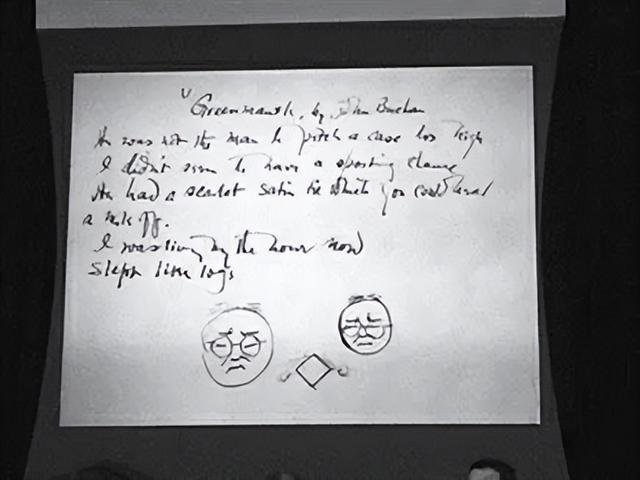 "Greenmantle, by John Buchan
He was not the man to pitch a case too high
I didn't seem to have a sporting chance
He had a scarlet satin tie which you could
a mile off.
I was living by the hour now
Slept like logs